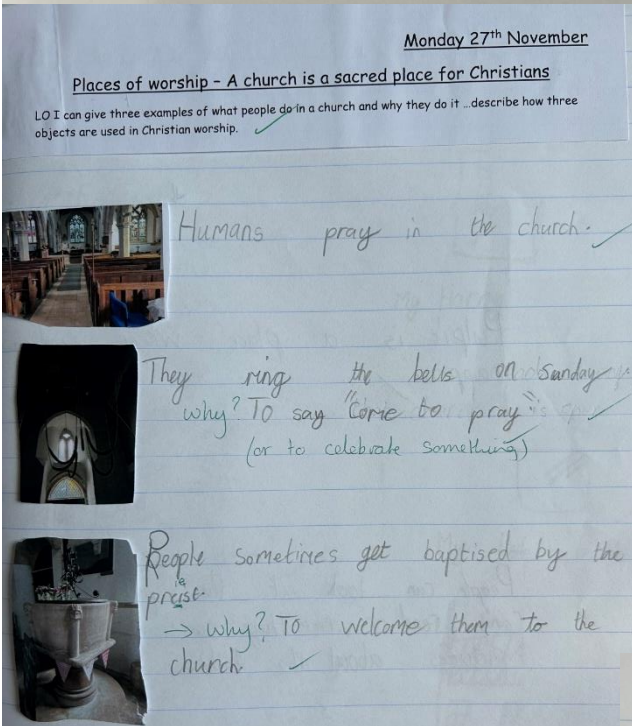 Monday 27th November
Places of worship - A church is a sacred place for Christians
LO I can give three examples of what people do in a church and why they do it ...describe how three
objects are used in Christian worship.
Humans pray in the church.
They ring the bells on Sunday
why? To say "Come to pray"
(or to celebrate something)
People sometimes get baptised by the
ie
preist.
→ why? To welcome them to the
church